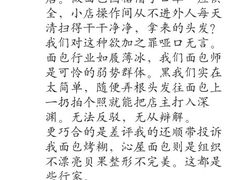 全，小店操作间从不进外人每天
清扫得干干净净，拿来的头发？
我们对这种欲加之罪哑口无言。
面包行业如履薄冰，我们面包师
是可怜的弱势群体。黑我们实在
太简单，随便弄根头发往面包上
一扔拍个照就能把店主打入深
渊。无法反驳，无从辩解。
更巧合的是差评我的还顺带投诉
我面包烤糊、沁屋面包则是组织
不漂亮贝果整形不完美。这都是
些行家。